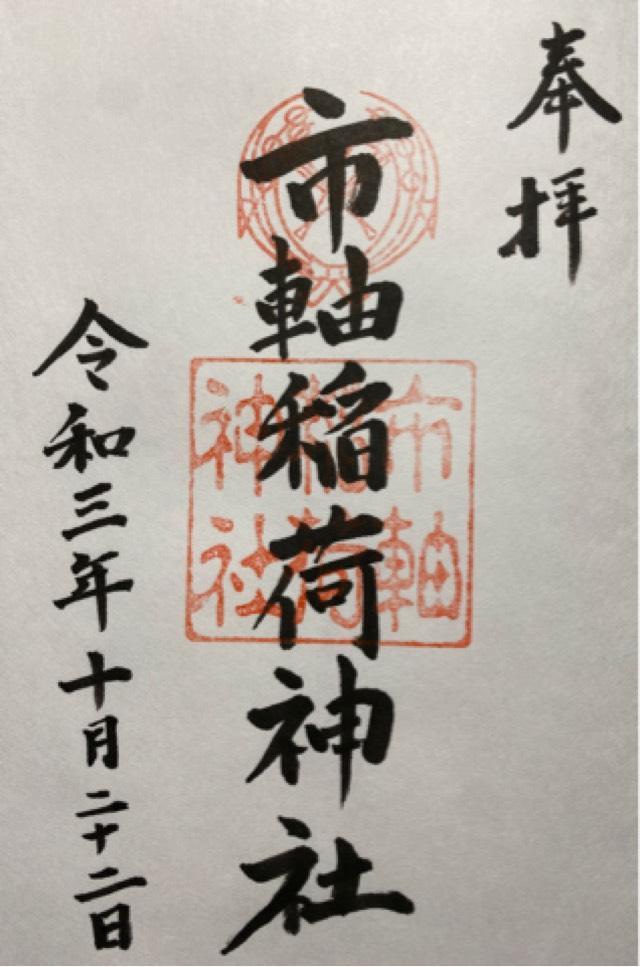 奉拝
市軸稲荷神社
市軸
稲荷
神社
令和三年十月二十二日